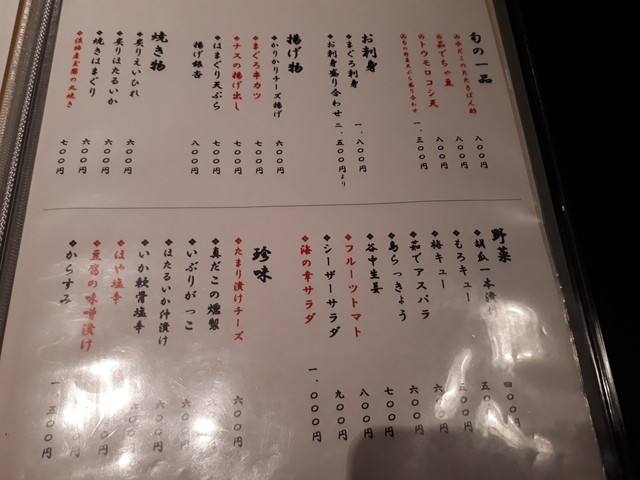 旬の一品
八〇〇円
茹でちゃ豆
八〇〇円
トウモロコシ天
八〇〇円
一、三〇〇円
お刺身
まぐろ刺身
一、八〇〇円
お刺身盛り合わせ
二、五〇〇円より
揚げ物
かりかりチーズ揚げ
六〇〇円
まぐろ串カツ
七〇〇円
ナスの揚げ出し
七〇〇円
はまぐり天ぷら
七〇〇円
揚げ銀杏
八〇〇円
焼き物
炙りえいひれ
六〇〇円
炙りほたるいか
六〇〇円
焼きはまぐり
六〇〇円
淡路産玉葱の丸焼き
七〇〇円
野菜
胡瓜一本漬け
四〇〇円
もろキュー
梅キュー
茹でアスパラ
六〇〇円
島らっきょう
七〇〇円
谷中生姜
八〇〇円
フルーツトマト
シーザーサラダ
九〇〇円
海の幸サラダ
一、〇〇〇円
珍味
たまり漬けチーズ
六〇〇円
真だこの燻製
いぶりがっこ
ほたるいか沖漬け
いか軟骨塩辛
ほや塩辛
豆腐の味噌漬け
からすみ
一、五〇〇円